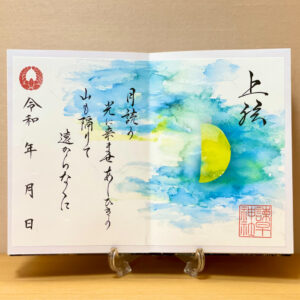 上弦
月読の
光に来ませあしひきの
山き隔りて
遠からなくに
令和　年　月　日
諫早神社